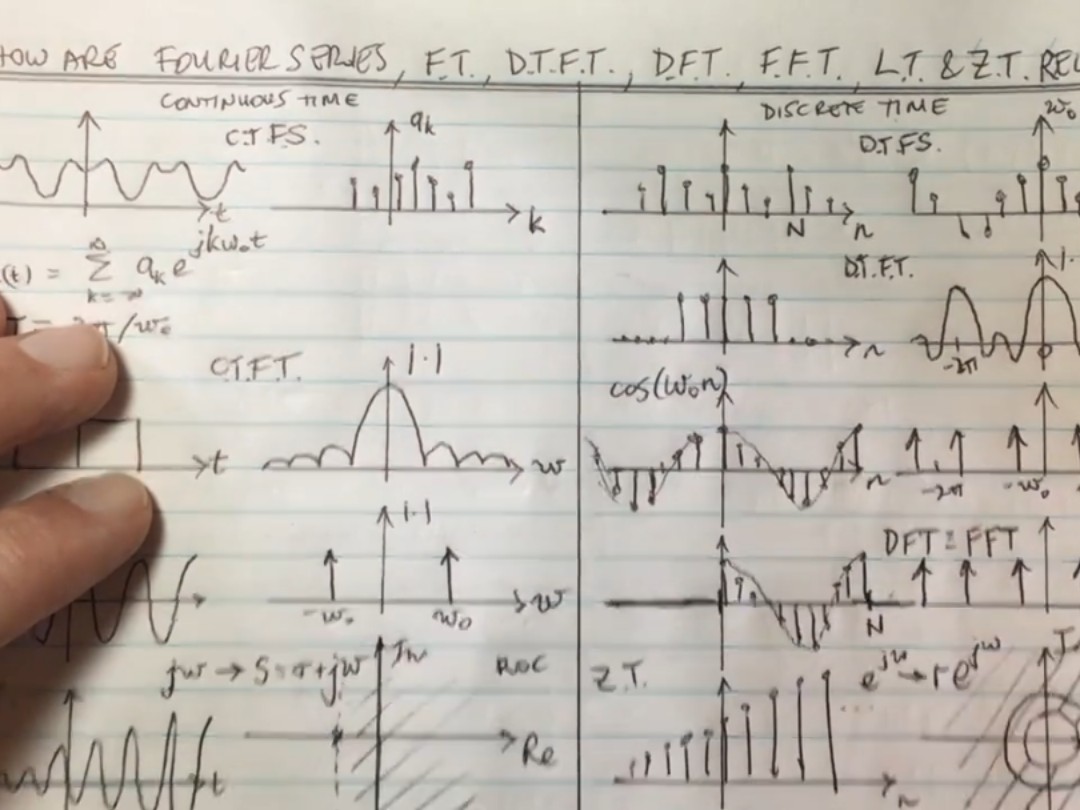 HOW ARE FOURIER SERIES, F.T., D.T.F.T., D.F.T. F.F.T. L.T. & Z.T. REL
CONTINUOUS TIME
C.T.F.S.
t
ak
k
(t) = ∞ Σ k=-∞ ak e^jkw₀t
T = 2π/w₀
C.T.F.T.
t
|·|
w
|·|
-w₀
w₀
w
jw → S=σ+jw
Im
ROC
t
Re
DISCRETE TIME
D.T.F.S.
N
n
w₀
D.T.F.T.
n
|·
-2π
cos(w₀n)
n
-2π
-w₀
DFT ≡ FFT
N
Z.T.
e^jw → re^jw
...
n